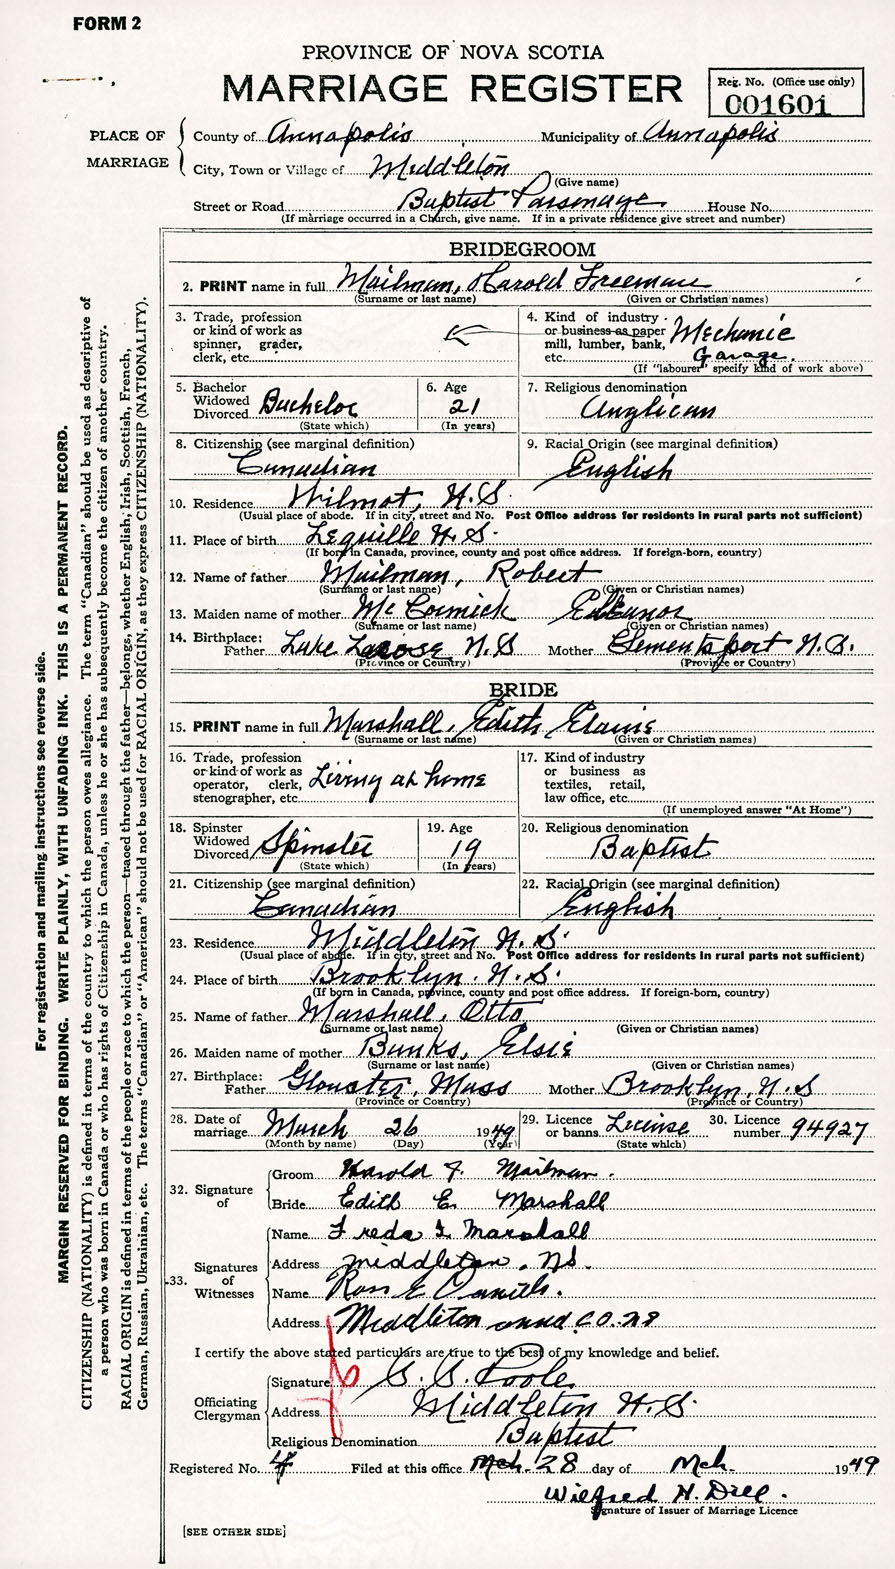 FORM 2
PROVINCE OF NOVA SCOTIA
MARRIAGE REGISTER
Reg. No. (Office use only)
001601
PLACE OF MARRIAGE
County of Annapolis Municipality of Annapolis
City, Town or Village of Middleton
(Give name)
Street or Road Baptist Parsonage House No.
(If marriage occurred in a Church, give name. If in a private residence give street and number)
BRIDEGROOM
2. PRINT name in full Mailman, Harold Freeman
(Surname or last name) (Given or Christian names)
3. Trade, profession
or kind of work as
spinner, grader,
clerk, etc.
4. Kind of industry
or business as paper
mill, lumber, bank,
etc.
Mechanic
Garage.
(If "labourer" specify kind of work above)
5. Bachelor
Widowed
Divorced Bachelor
(State which)
6. Age
21
(In years)
7. Religious denomination
Anglican
8. Citizenship (see marginal definition)
Canadian
9. Racial Origin (see marginal definition)
English
10. Residence Wilmot, N.S.
(Usual place of abode. If in city, street and No. Post Office address for residents in rural parts not sufficient)
11. Place of birth Lequille N.S.
(If born in Canada, province, county and post office address. If foreign-born, country)
12. Name of father Mailman, Robert
(Surname or last name) (Given or Christian names)
13. Maiden name of mother McCormick Eleanor
(Surname or last name) (Given or Christian names)
14. Birthplace:
Father Lake Larose N.S Mother Clementsport N.S.
(Province or Country) (Province or Country)
BRIDE
15. PRINT name in full Marshall, Edith Elaine
(Surname or last name) (Given or Christian names)
16. Trade, profession
or kind of work as
operator, clerk,
stenographer, etc.
Living at home
17. Kind of industry
or business as
textiles, retail,
law office, etc.
(If unemployed answer "At Home")
18. Spinster
Widowed
Divorced Spinster
(State which)
19. Age
19
(In years)
20. Religious denomination
Baptist
21. Citizenship (see marginal definition)
Canadian
22. Racial Origin (see marginal definition)
English
23. Residence Middleton N.S.
(Usual place of abode. If in city, street and No. Post Office address for residents in rural parts not sufficient)
24. Place of birth Brooklyn. N.S.
(If born in Canada, province, county and post office address. If foreign-born, country)
25. Name of father Marshall, Otto
(Surname or last name) (Given or Christian names)
26. Maiden name of mother Banks, Elsie
(Surname or last name) (Given or Christian names)
27. Birthplace:
Father Gloucster, Mass Mother Brooklyn, N.S
(Province or Country) (Province or Country)
28. Date of
marriage March 26 1949
(Month by name) (Day) (Year)
29. Licence
or banns License
(State which)
30. Licence
number 94927
32. Signature
of
Groom Harold F. Mailman.
Bride Edith E. Marshall
33. Signatures
of
Witnesses
Name Freda I. Marshall
Address Middleton, NS.
Name Ross E Daniels.
Address Middleton annd. CO. NS
I certify the above stated particulars are true to the best of my knowledge and belief.
Officiating
Clergyman
Signature S. S. Poole
Address Middleton N.S.
Religious Denomination Baptist
Registered No. 4 Filed at this office Mch. 28 day of Mch. 1949
Wilfred H. Dill.
Signature of Issuer of Marriage Licence
[SEE OTHER SIDE]
For registration and mailing instructions see reverse side.
MARGIN RESERVED FOR BINDING. WRITE PLAINLY, WITH UNFADING INK. THIS IS A PERMANENT RECORD.
CITIZENSHIP (NATIONALITY) is defined in terms of the country to which the person owes allegiance. The term "Canadian" should be used as descriptive of
a person who was born in Canada or who has rights of Citizenship in Canada, unless he or she has subsequently become the citizen of another country.
RACIAL ORIGIN is defined in terms of the people or race to which the person—traced through the father—belongs, whether English, Irish, Scottish, French,
German, Russian, Ukrainian, etc. The terms "Canadian" or "American" should not be used for RACIAL ORIGIN, as they express CITIZENSHIP (NATIONALITY).